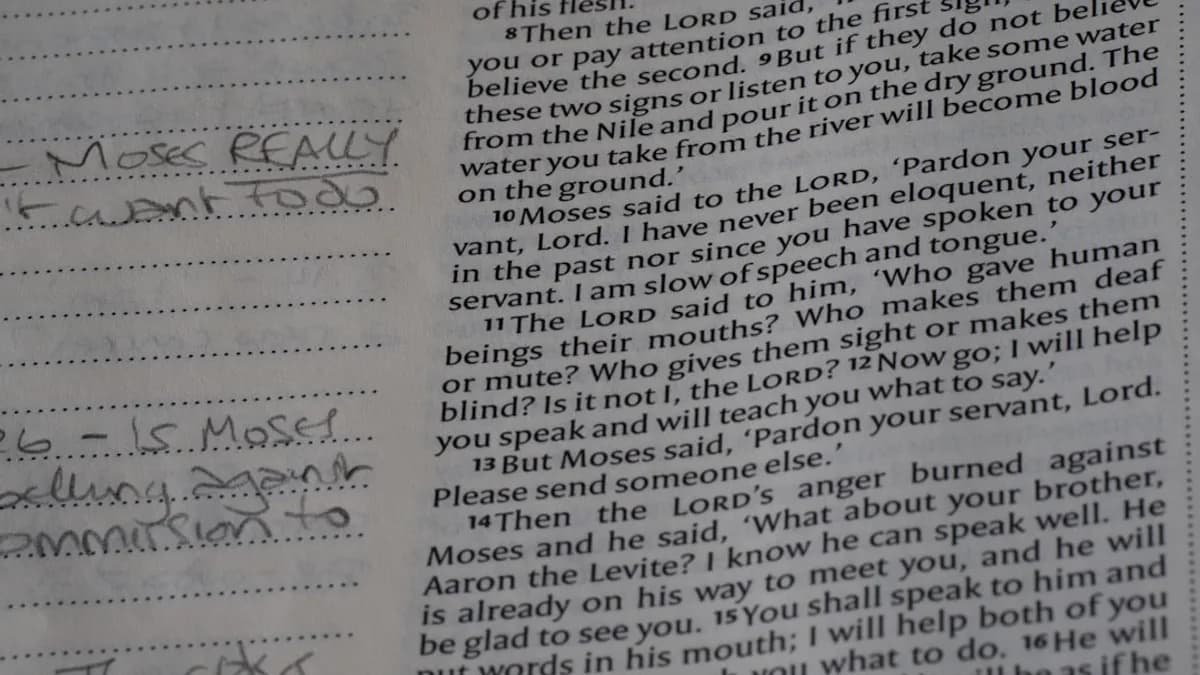 - Moses REALLY
't want to do
26 - Is Moses
against
to
of his flesh.'
8 Then the LORD said,
you or pay attention to the first sign,
believe the second. 9 But if they do not believe
these two signs or listen to you, take some water
from the Nile and pour it on the dry ground. The
water you take from the river will become blood
on the ground.'
10 Moses said to the LORD, 'Pardon your ser-
vant, Lord. I have never been eloquent, neither
in the past nor since you have spoken to your
servant. I am slow of speech and tongue.'
11 The LORD said to him, 'Who gave human
beings their mouths? Who makes them deaf
or mute? Who gives them sight or makes them
blind? Is it not I, the LORD? 12 Now go; I will help
you speak and will teach you what to say.'
13 But Moses said, 'Pardon your servant, Lord.
Please send someone else.'
14 Then the LORD's anger burned against
Moses and he said, 'What about your brother,
Aaron the Levite? I know he can speak well. He
is already on his way to meet you, and he will
be glad to see you. 15 You shall speak to him and
put words in his mouth; I will help both of you
you what to do. 16 He will
as if he